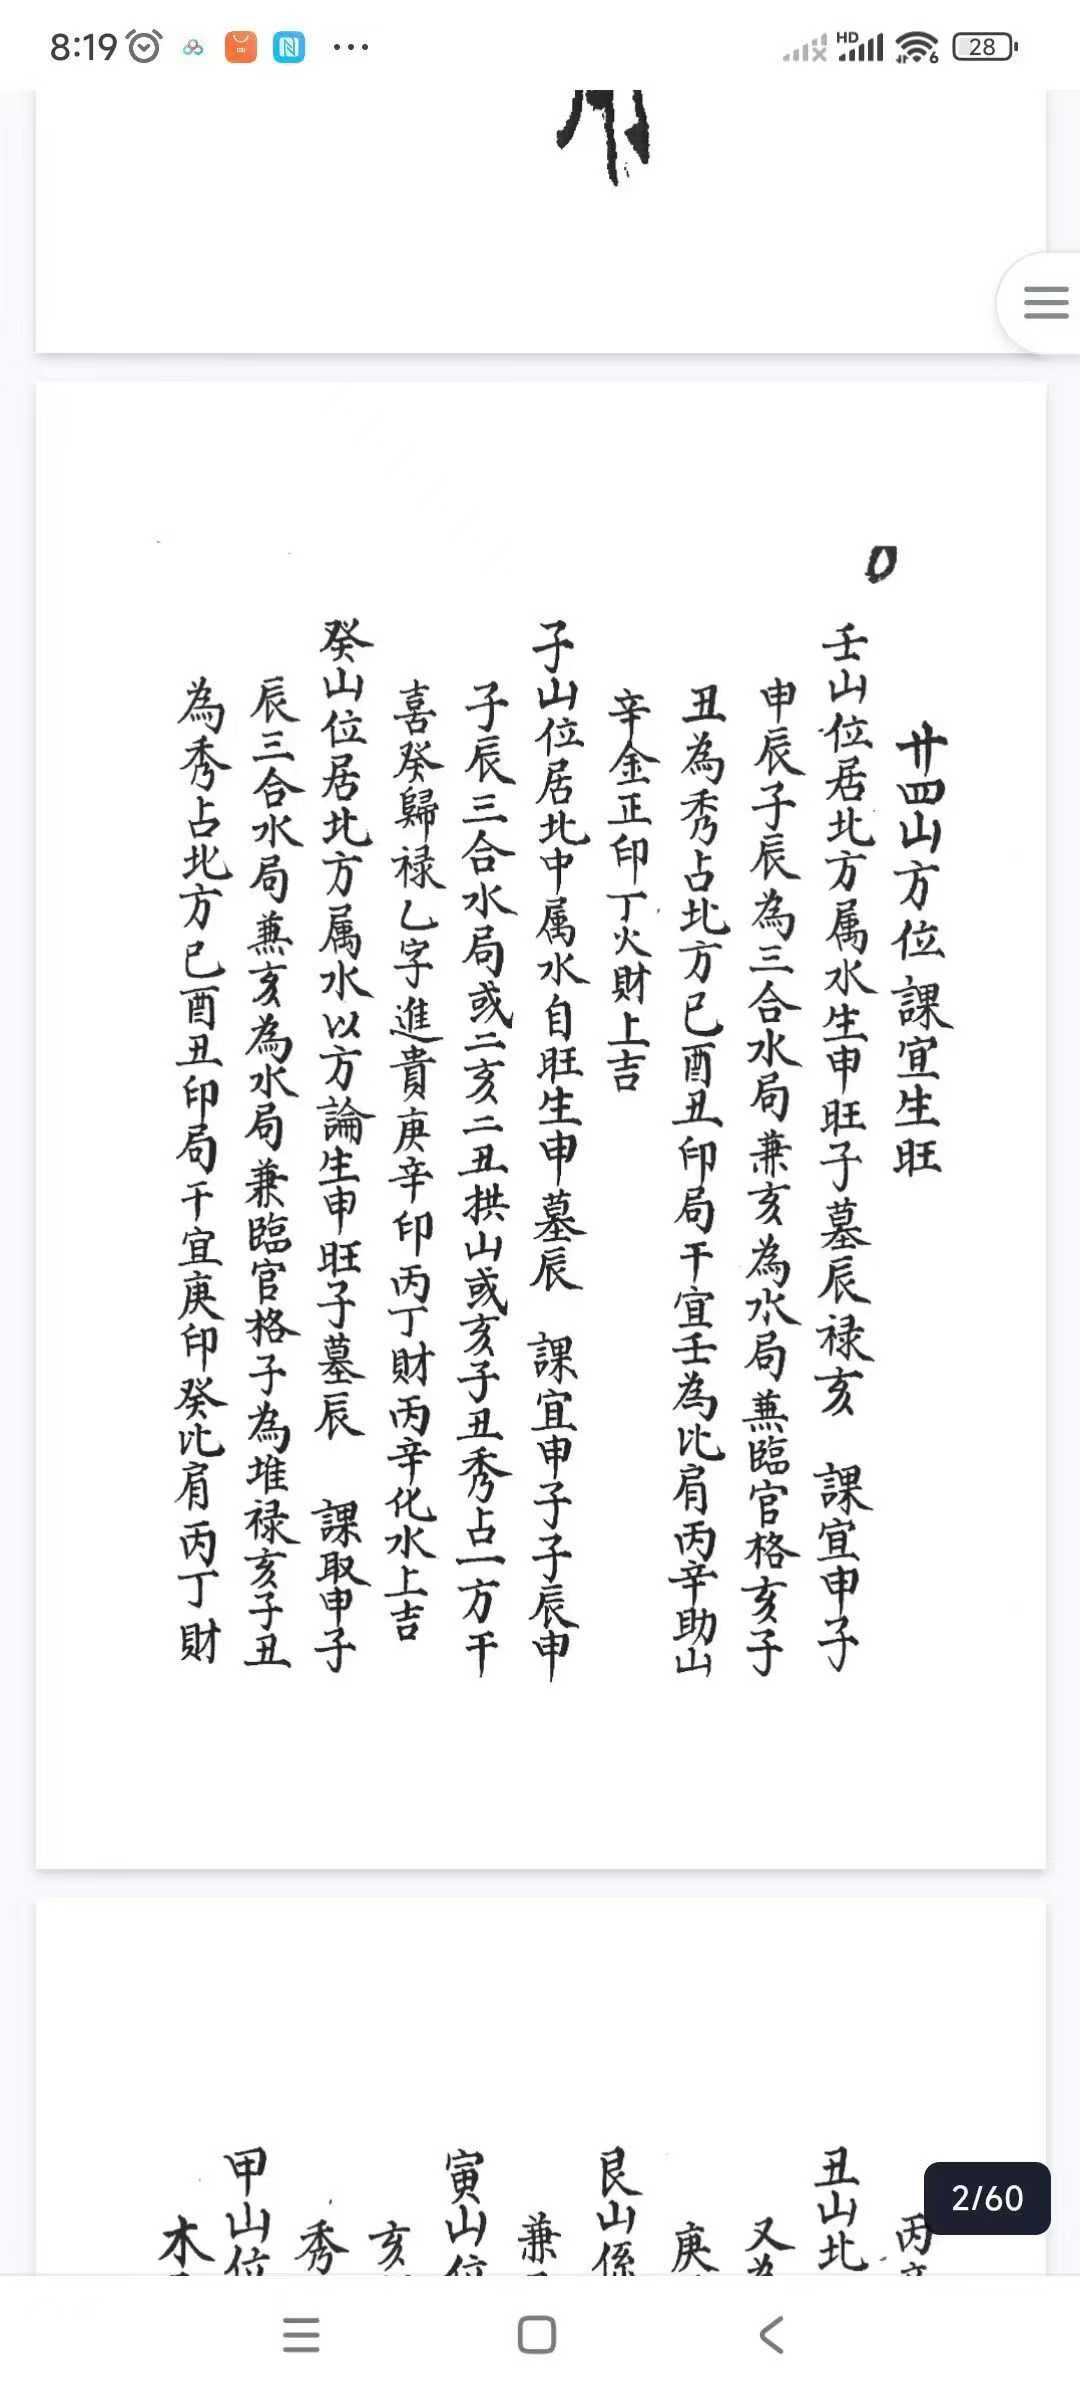 8:19
HD
6
28
廿四山方位課宜生旺
壬山位居北方属水生申旺子墓辰禄亥　課宜申子
申辰子辰為三合水局兼亥為水局兼臨官格亥子
丑為秀占北方巳酉丑印局干宜壬為比肩丙辛助山
辛金正印丁火財上吉
子山位居北中属水自旺生申墓辰　課宜申子子辰申
子辰三合水局或二亥二丑拱山或亥子丑秀占一方干
喜癸歸禄乙字進貴庚辛印丙丁財丙辛化水上吉
癸山位居北方属水以方論生申旺子墓辰　課取申子
辰三合水局兼亥為水局兼臨官格子為堆禄亥子丑
為秀占北方巳酉丑印局干宜庚印癸比肩丙丁財
2/60
丙
丑山北
又為
庚
艮山係
兼
寅山位
亥
秀
甲山位
木